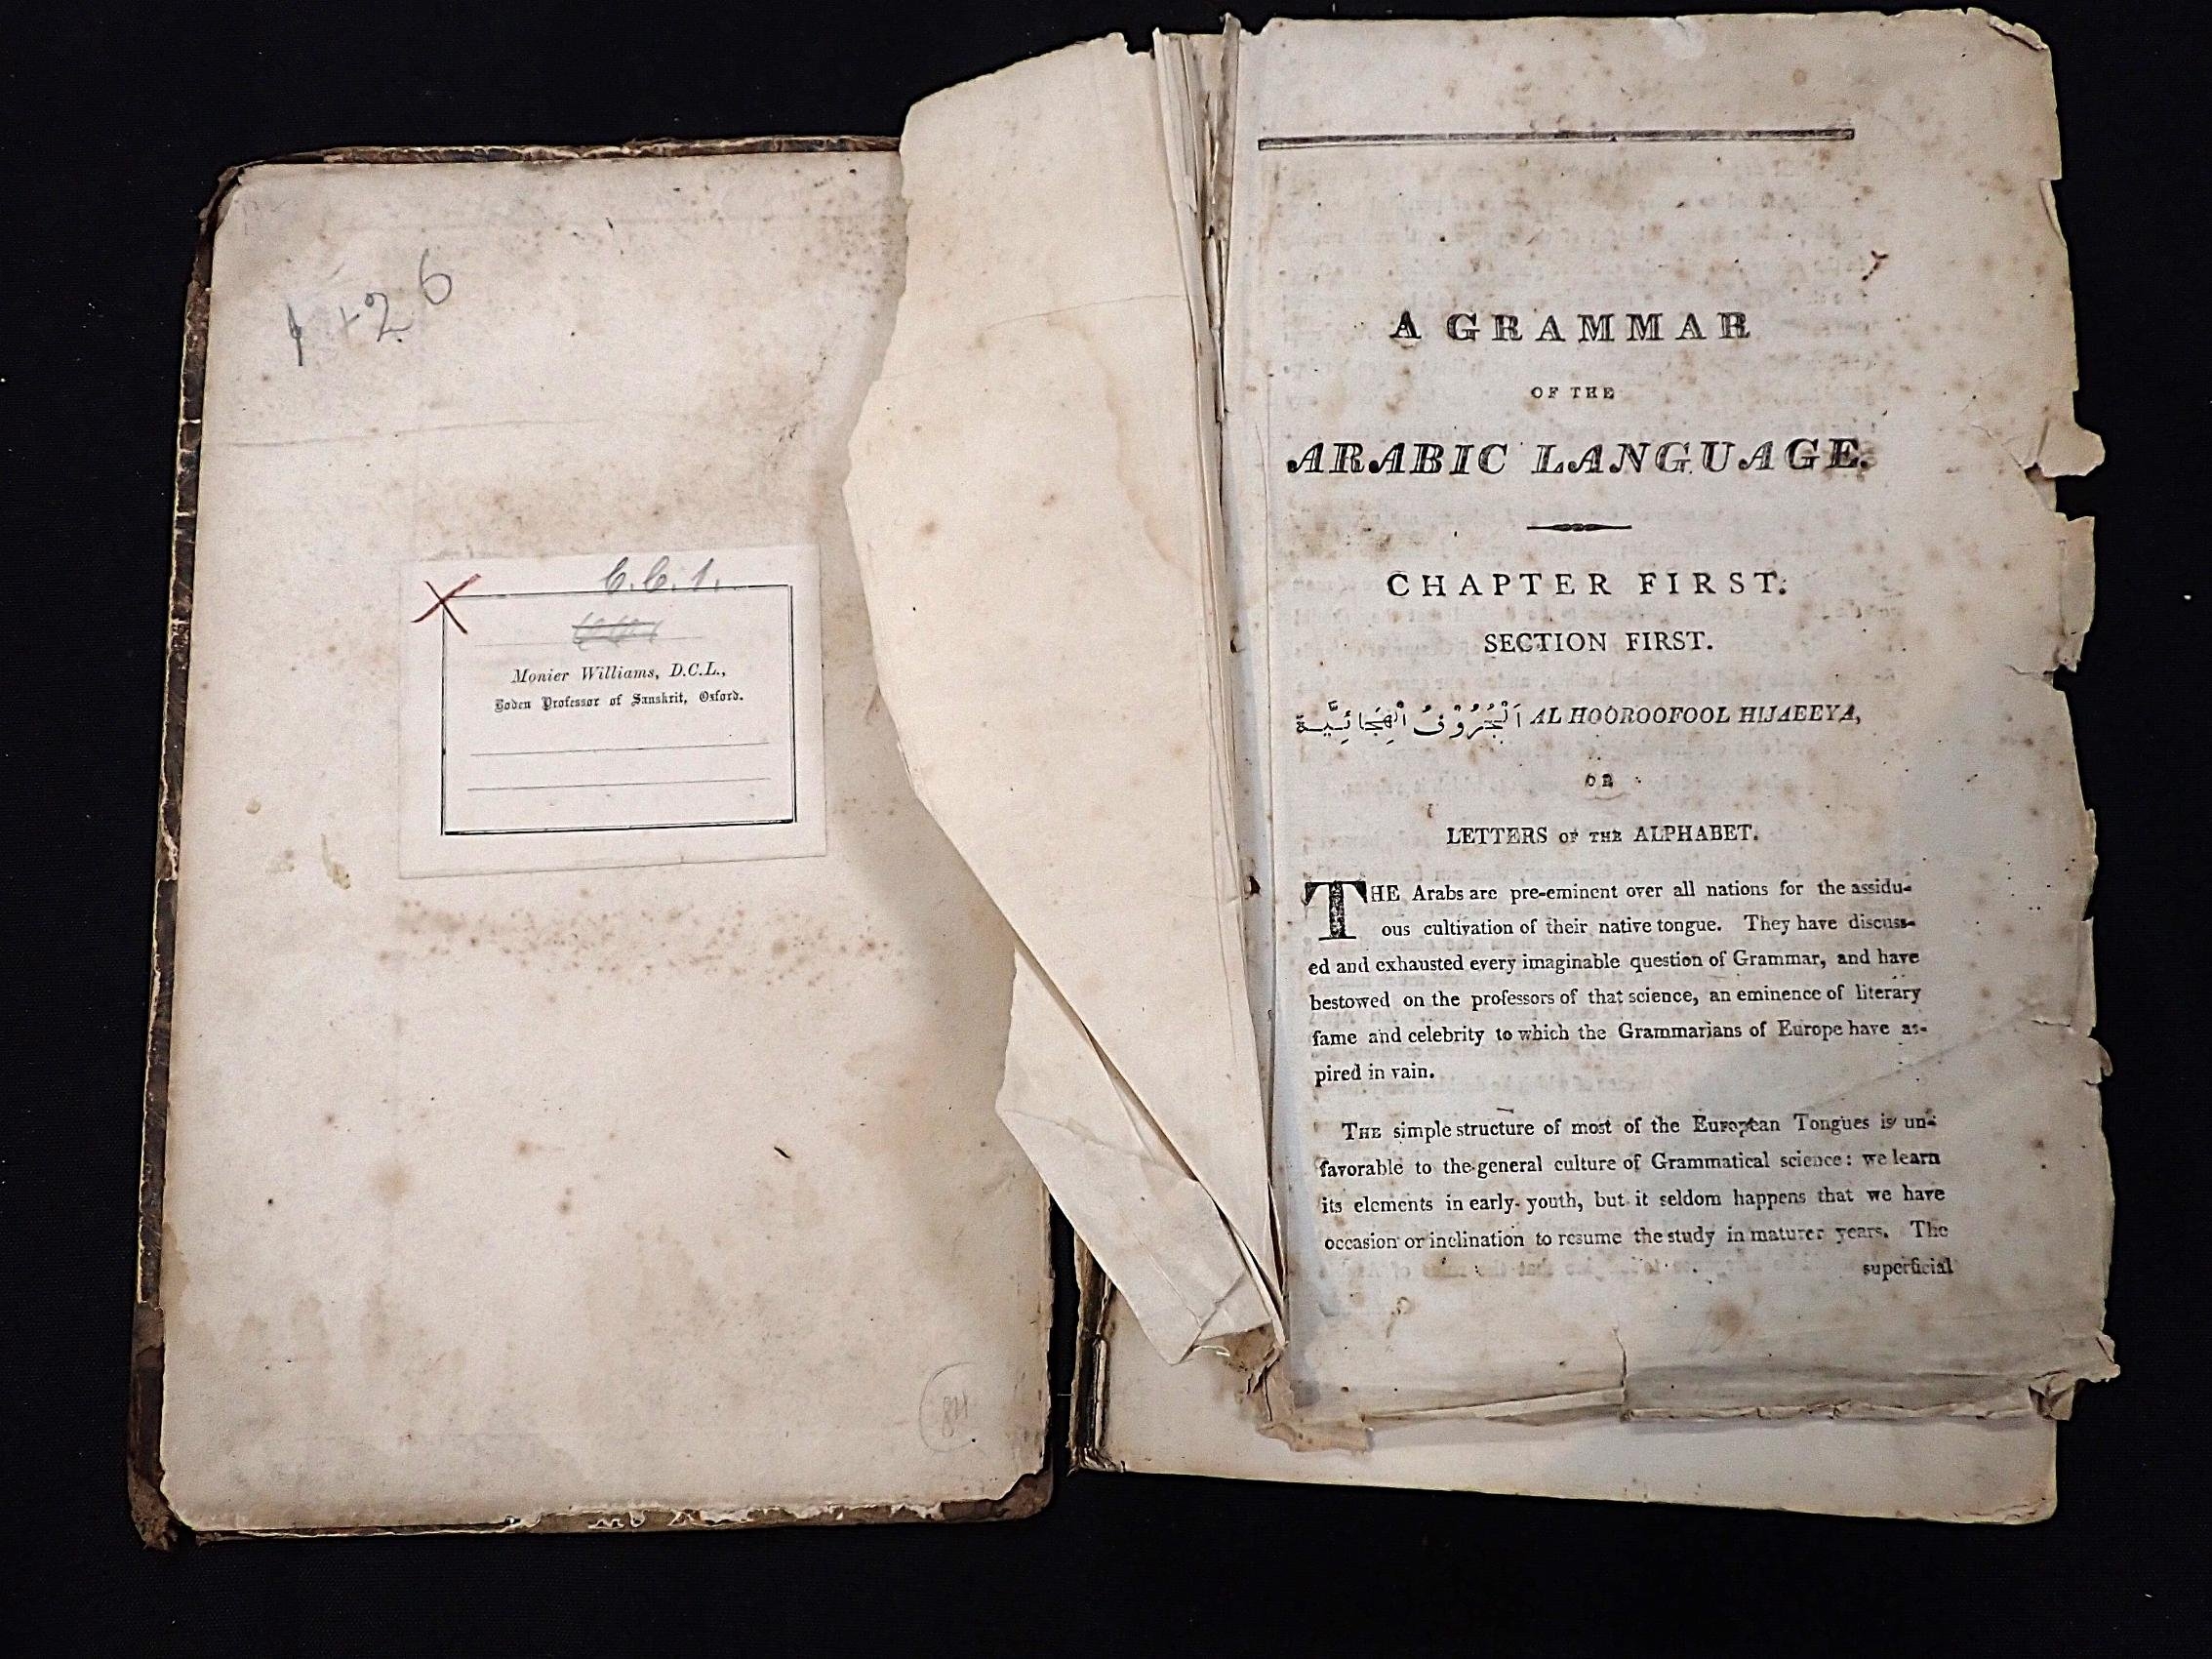 1+26
C.C.1.
Monier Williams, D.C.L.,
Boden Professor of Sanskrit, Oxford.
A GRAMMAR
OF THE
ARABIC LANGUAGE.
CHAPTER FIRST.
SECTION FIRST.
اَلْحُرُوْفُ الْهِجَائِيَّة AL HOOROOFOOL HIJAEEYA,
OR
LETTERS OF THE ALPHABET.
THE Arabs are pre-eminent over all nations for the assidu-
ous cultivation of their native tongue. They have discuss-
ed and exhausted every imaginable question of Grammar, and have
bestowed on the professors of that science, an eminence of literary
fame and celebrity to which the Grammarians of Europe have as-
pired in vain.
THE simple structure of most of the European Tongues is un-
favorable to the general culture of Grammatical science: we learn
its elements in early youth, but it seldom happens that we have
occasion or inclination to resume the study in maturer years. The
superficial